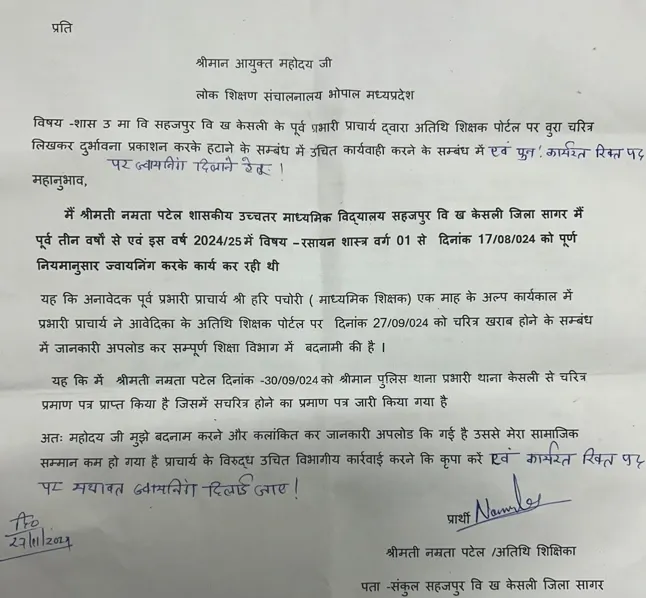 प्रति
श्रीमान आयुक्त महोदय जी
लोक शिक्षण संचालनालय भोपाल मध्यप्रदेश
विषय -शास उ मा वि सहजपुर वि ख केसली के पूर्व प्रभारी प्राचार्य द्वारा अतिथि शिक्षक पोर्टल पर बुरा चरित्र
लिखकर दुर्भावना प्रकाशन करके हटाने के सम्बंध में उचित कार्यवाही करने के सम्बंध में एवं पुनः कार्यरत रिक्त पद
पर ज्वायनिंग दिलाने हेतु !
महानुभाव,
मैं श्रीमती नम्रता पटेल शासकीय उच्चतर माध्यमिक विद्यालय सहजपुर वि ख केसली जिला सागर मैं
पूर्व तीन वर्षो से एवं इस वर्ष 2024/25 में विषय – रसायन शास्त्र वर्ग 01 से दिनांक 17/08/024 को पूर्ण
नियमानुसार ज्वायनिंग करके कार्य कर रही थी
यह कि अनावेदक पूर्व प्रभारी प्राचार्य श्री हरि पचोरी ( माध्यमिक शिक्षक) एक माह के अल्प कार्यकाल में
प्रभारी प्राचार्य ने आवेदिका के अतिथि शिक्षक पोर्टल पर दिनांक 27/09/024 को चरित्र खराब होने के सम्बंध
में जानकारी अपलोड कर सम्पूर्ण शिक्षा विभाग में बदनामी की है ।
यह कि में श्रीमती नम्रता पटेल दिनांक -30/09/024 को श्रीमान पुलिस थाना प्रभारी थाना केसली से चरित्र
प्रमाण पत्र प्राप्त किया है जिसमें सचरित्र होने का प्रमाण पत्र जारी किया गया है
अतः महोदय जी मुझे बदनाम करने और कलांकित कर जानकारी अपलोड कि गई है उससे मेरा सामाजिक
सम्मान कम हो गया है प्राचार्य के विरुद्ध उचित विभागीय कार्रवाई करने कि कृपा करें एवं कार्यरत रिक्त पद
पर यथावत ज्वायनिंग दिलाई जाए !
27/11/2024
प्रार्थी
श्रीमती नम्रता पटेल /अतिथि शिक्षिका
पता -संकुल सहजपुर वि ख केसली जिला सागर